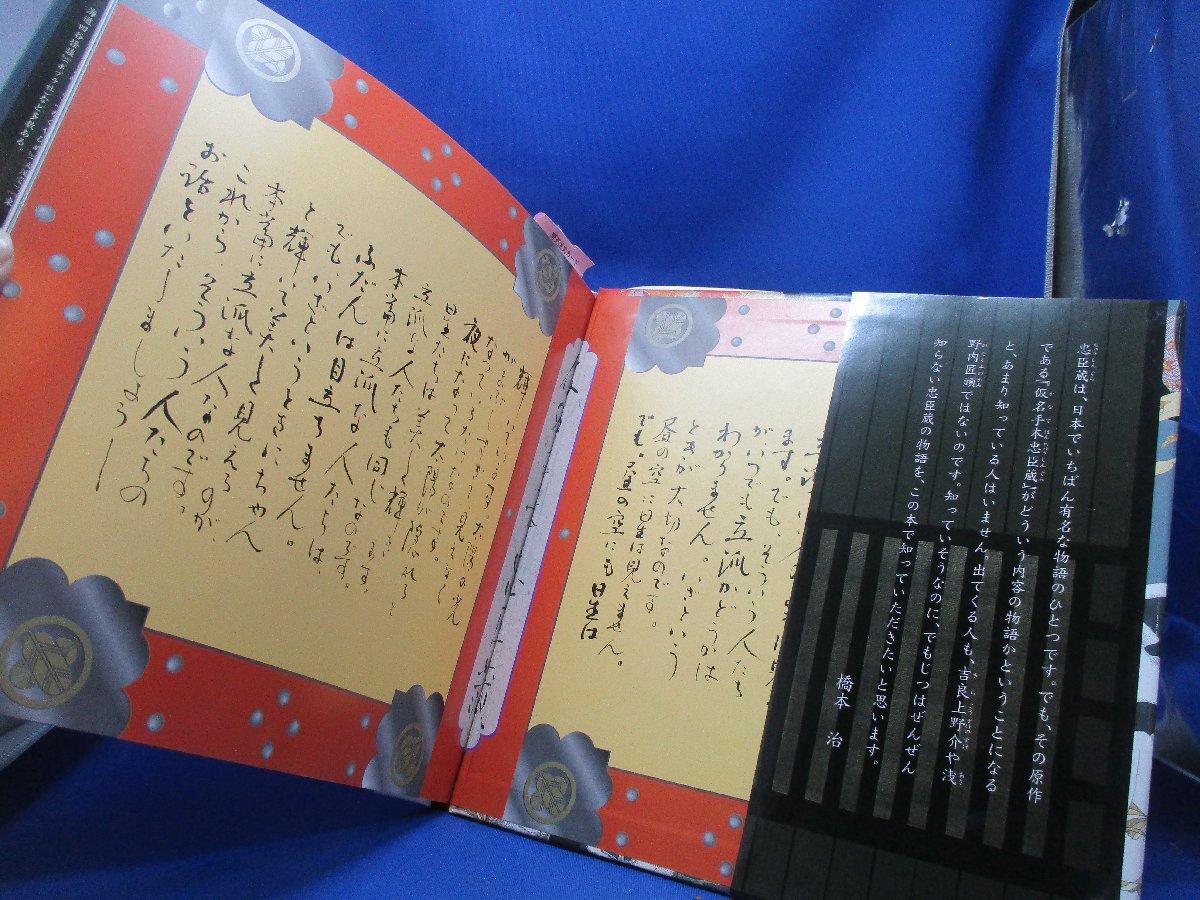 忠臣蔵は、日本でいちばん有名な物語のひとつです。でも、その原作
である『仮名手本忠臣蔵』がどういう内容の物語かということになる
と、あまり知っている人はいません。出てくる人も、吉良上野介や浅
野内匠頭ではないのです。知っていそうなのに、でもじつはぜんぜん
知らない忠臣蔵の物語を、この本で知っていただきたいと思います。
橋本 治
ます。でも、そういう人たち
がいつでも立派かどうかは
わかりません。いざという
ときが大切なのです。
昼の空に星は見えません。
でも、昼の空にも星は
輝いています。太陽の光
がまぶしすぎて見えなく
なっているだけなのです。
夜になって太陽が隠れると
星たちは美しく輝きます。
立派な人たちも同じなのです。
本当に立派な人たちは、
ふだんは目立ちません。
でも、いざというときにちゃん
と輝いて美しく見えるのが、
本当に立派な人なのです。
これからそういう人たちの
お話をいたしましょう。
海道四谷怪談』(ポプラ社)など多数ある。